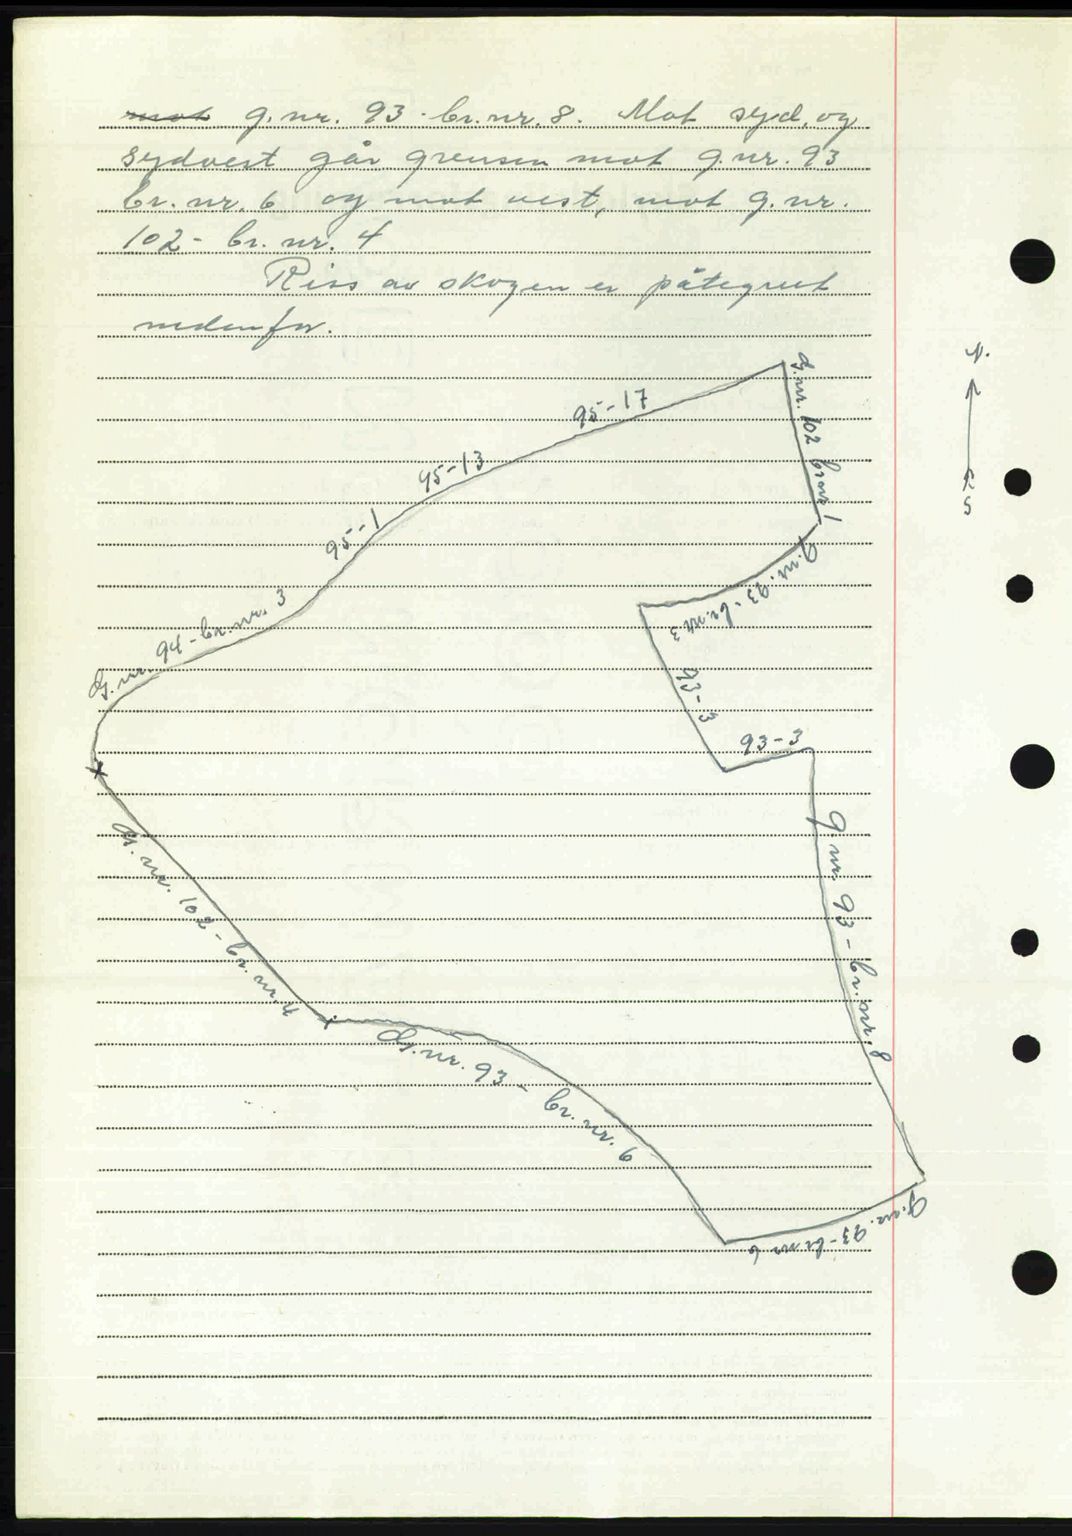 mot g.nr. 93 - br.nr. 8. Mot syd, og
sydvest går grensen mot g.nr. 93
br. nr. 6 og mot vest, mot g.nr.
102 - br. nr. 4
Riss av skogen er påtegnet
nedenfor.
N.
S
95-17
G.nr. 102 br.nr 1
95-13
95-1
G.nr. 93 - br.nr 3
G.nr. 94 - br.nr. 3
93-3
93-3
G.nr. 93 - br.nr. 8
G.nr. 102 - br.nr. 4
G.nr. 93 - br.nr. 6
G.nr. 93 - br.nr 6